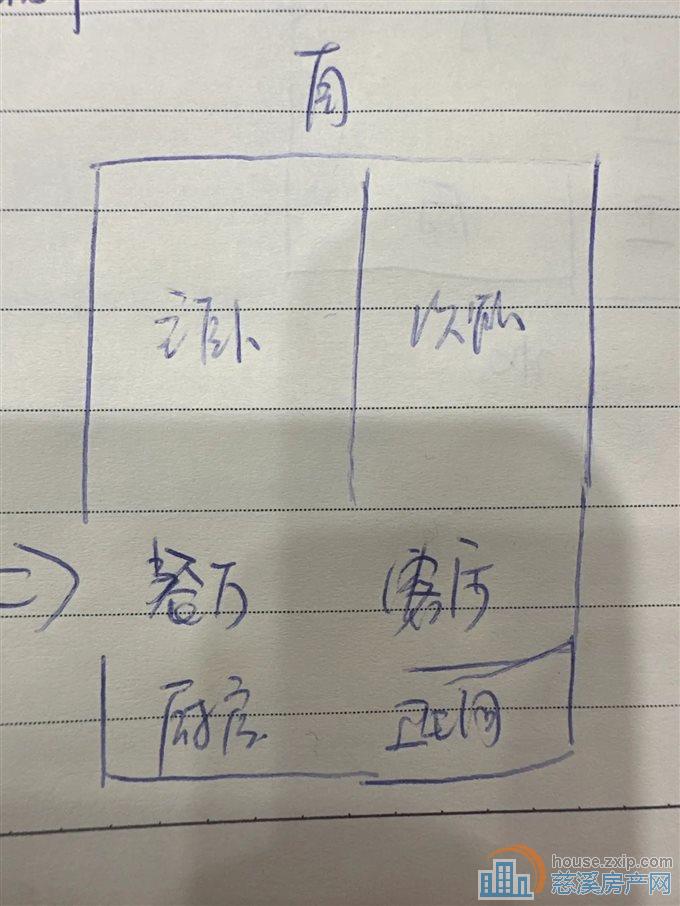 南
主卧 次卧
餐厅 客厅
厨房 卫生间
house.zxip.com
慈溪房产网